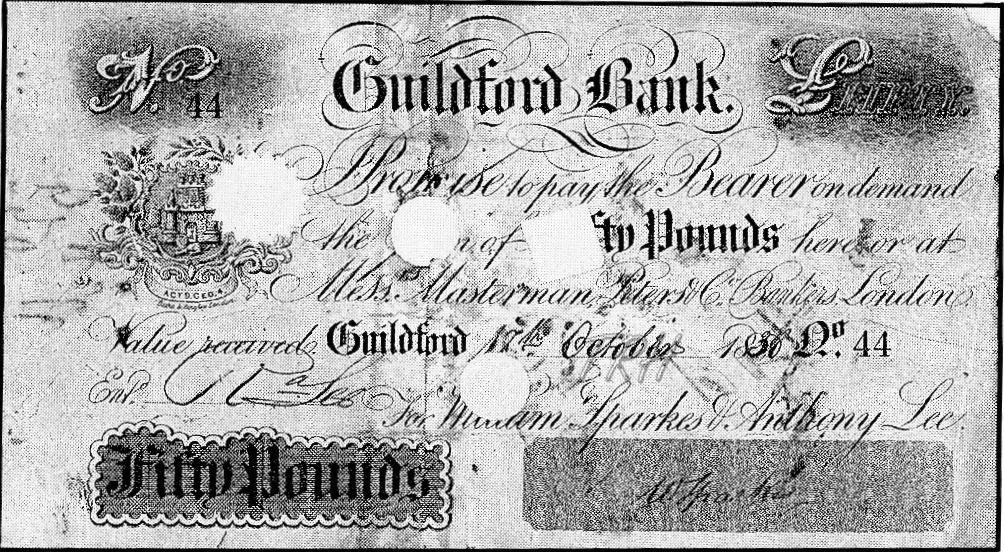 No 44
Guildford Bank.
I Promise to pay the Bearer on demand
the of ty Pounds here or at
Mess. Masterman, Peters & Co. Bankers London
Value received. Guildford 17th October No. 44
Entd.
For William Sparkes & Anthony Lee.
Fifty Pounds
W Sparkes